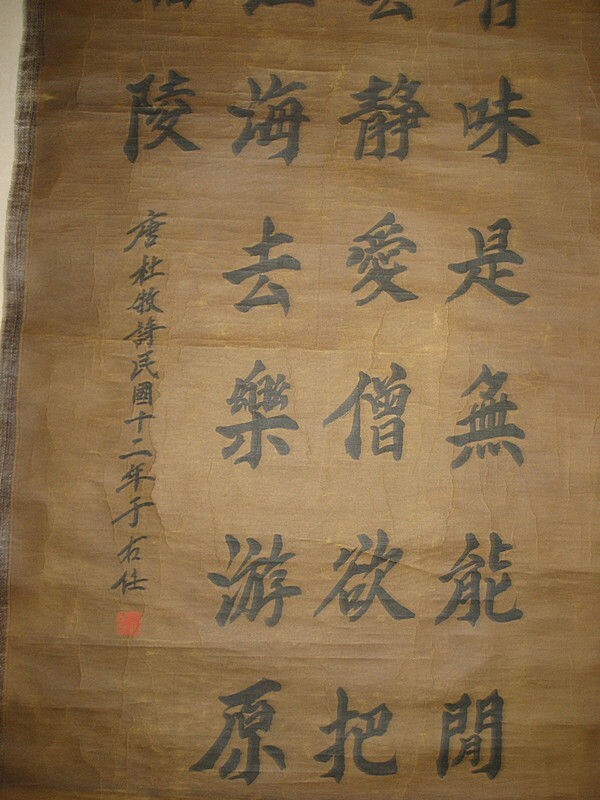 味是無能閒
靜愛僧欲把
海去樂游原
陵
唐杜牧詩民國十二年于右任